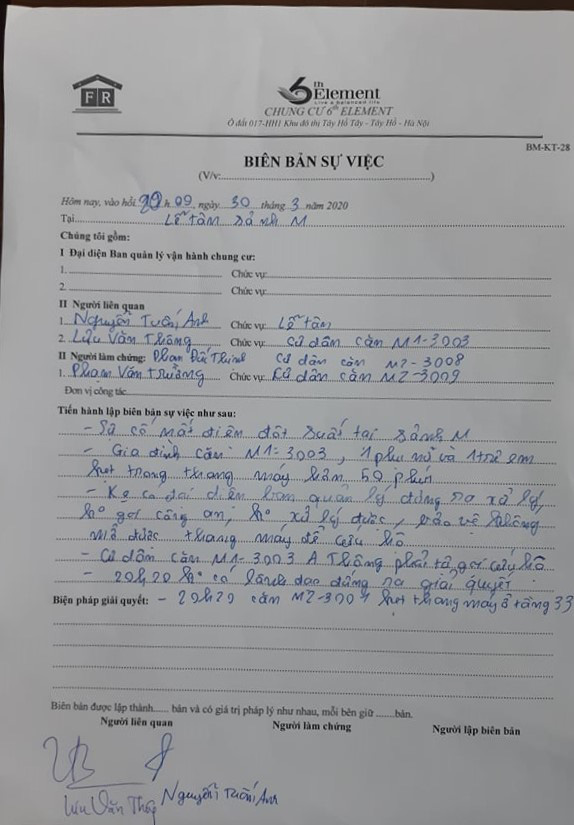 FR
6th Element
Live a balanced life
CHUNG CƯ 6TH ELEMENT
Ô đất 017-HH1 Khu đô thị Tây Hồ Tây - Tây Hồ - Hà Nội
BM-KT-28
BIÊN BẢN SỰ VIỆC
(V/v:)
Hôm nay, vào hồi h 09, ngày 30 tháng 3 năm 2020
Tại Lễ tân sảnh M
Chúng tôi gồm:
I Đại diện Ban quản lý vận hành chung cư:
1. Chức vụ:
2. Chức vụ:
II Người liên quan
1. Nguyễn Tuấn Anh Chức vụ: Lễ tân
2. Lưu Văn Thông Chức vụ: Cư dân căn M1-3003
II Người làm chứng: Phạm Đức Thịnh Cư dân căn M2-3008
1. Phạm Văn Trường Chức vụ: Cư dân căn M2-3009
Đơn vị công tác
Tiến hành lập biên bản sự việc như sau:
- Sự cố mất điện đột xuất tại sảnh M
- Gia đình căn M1-3003, 1 phụ nữ và 1 trẻ em
kẹt trong thang máy hầm 50 phút
- K có đại diện ban quản lý đứng ra xử lý,
ko gọi công an, ko xử lý được, bảo vệ không
mở được thang máy để cứu hộ
- Cư dân căn M1-3003 A Thông phải tự gọi cứu hộ
- 20h20 ko có lãnh đạo đứng ra giải quyết
Biện pháp giải quyết: - 20h20 căn M2-3007 kẹt thang máy ở tầng 33
Biên bản được lập thành...... bản và có giá trị pháp lý như nhau, mỗi bên giữ .......bản.
Người liên quan Người làm chứng Người lập biên bản
Lưu Văn Thông Nguyễn Tuấn Anh